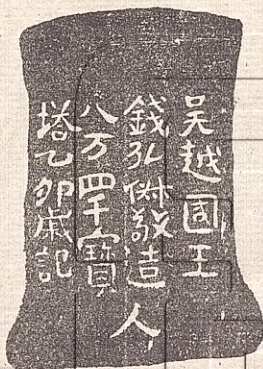 吳越國王
錢弘俶敬造人
八万四千寶
塔乙卯歲記